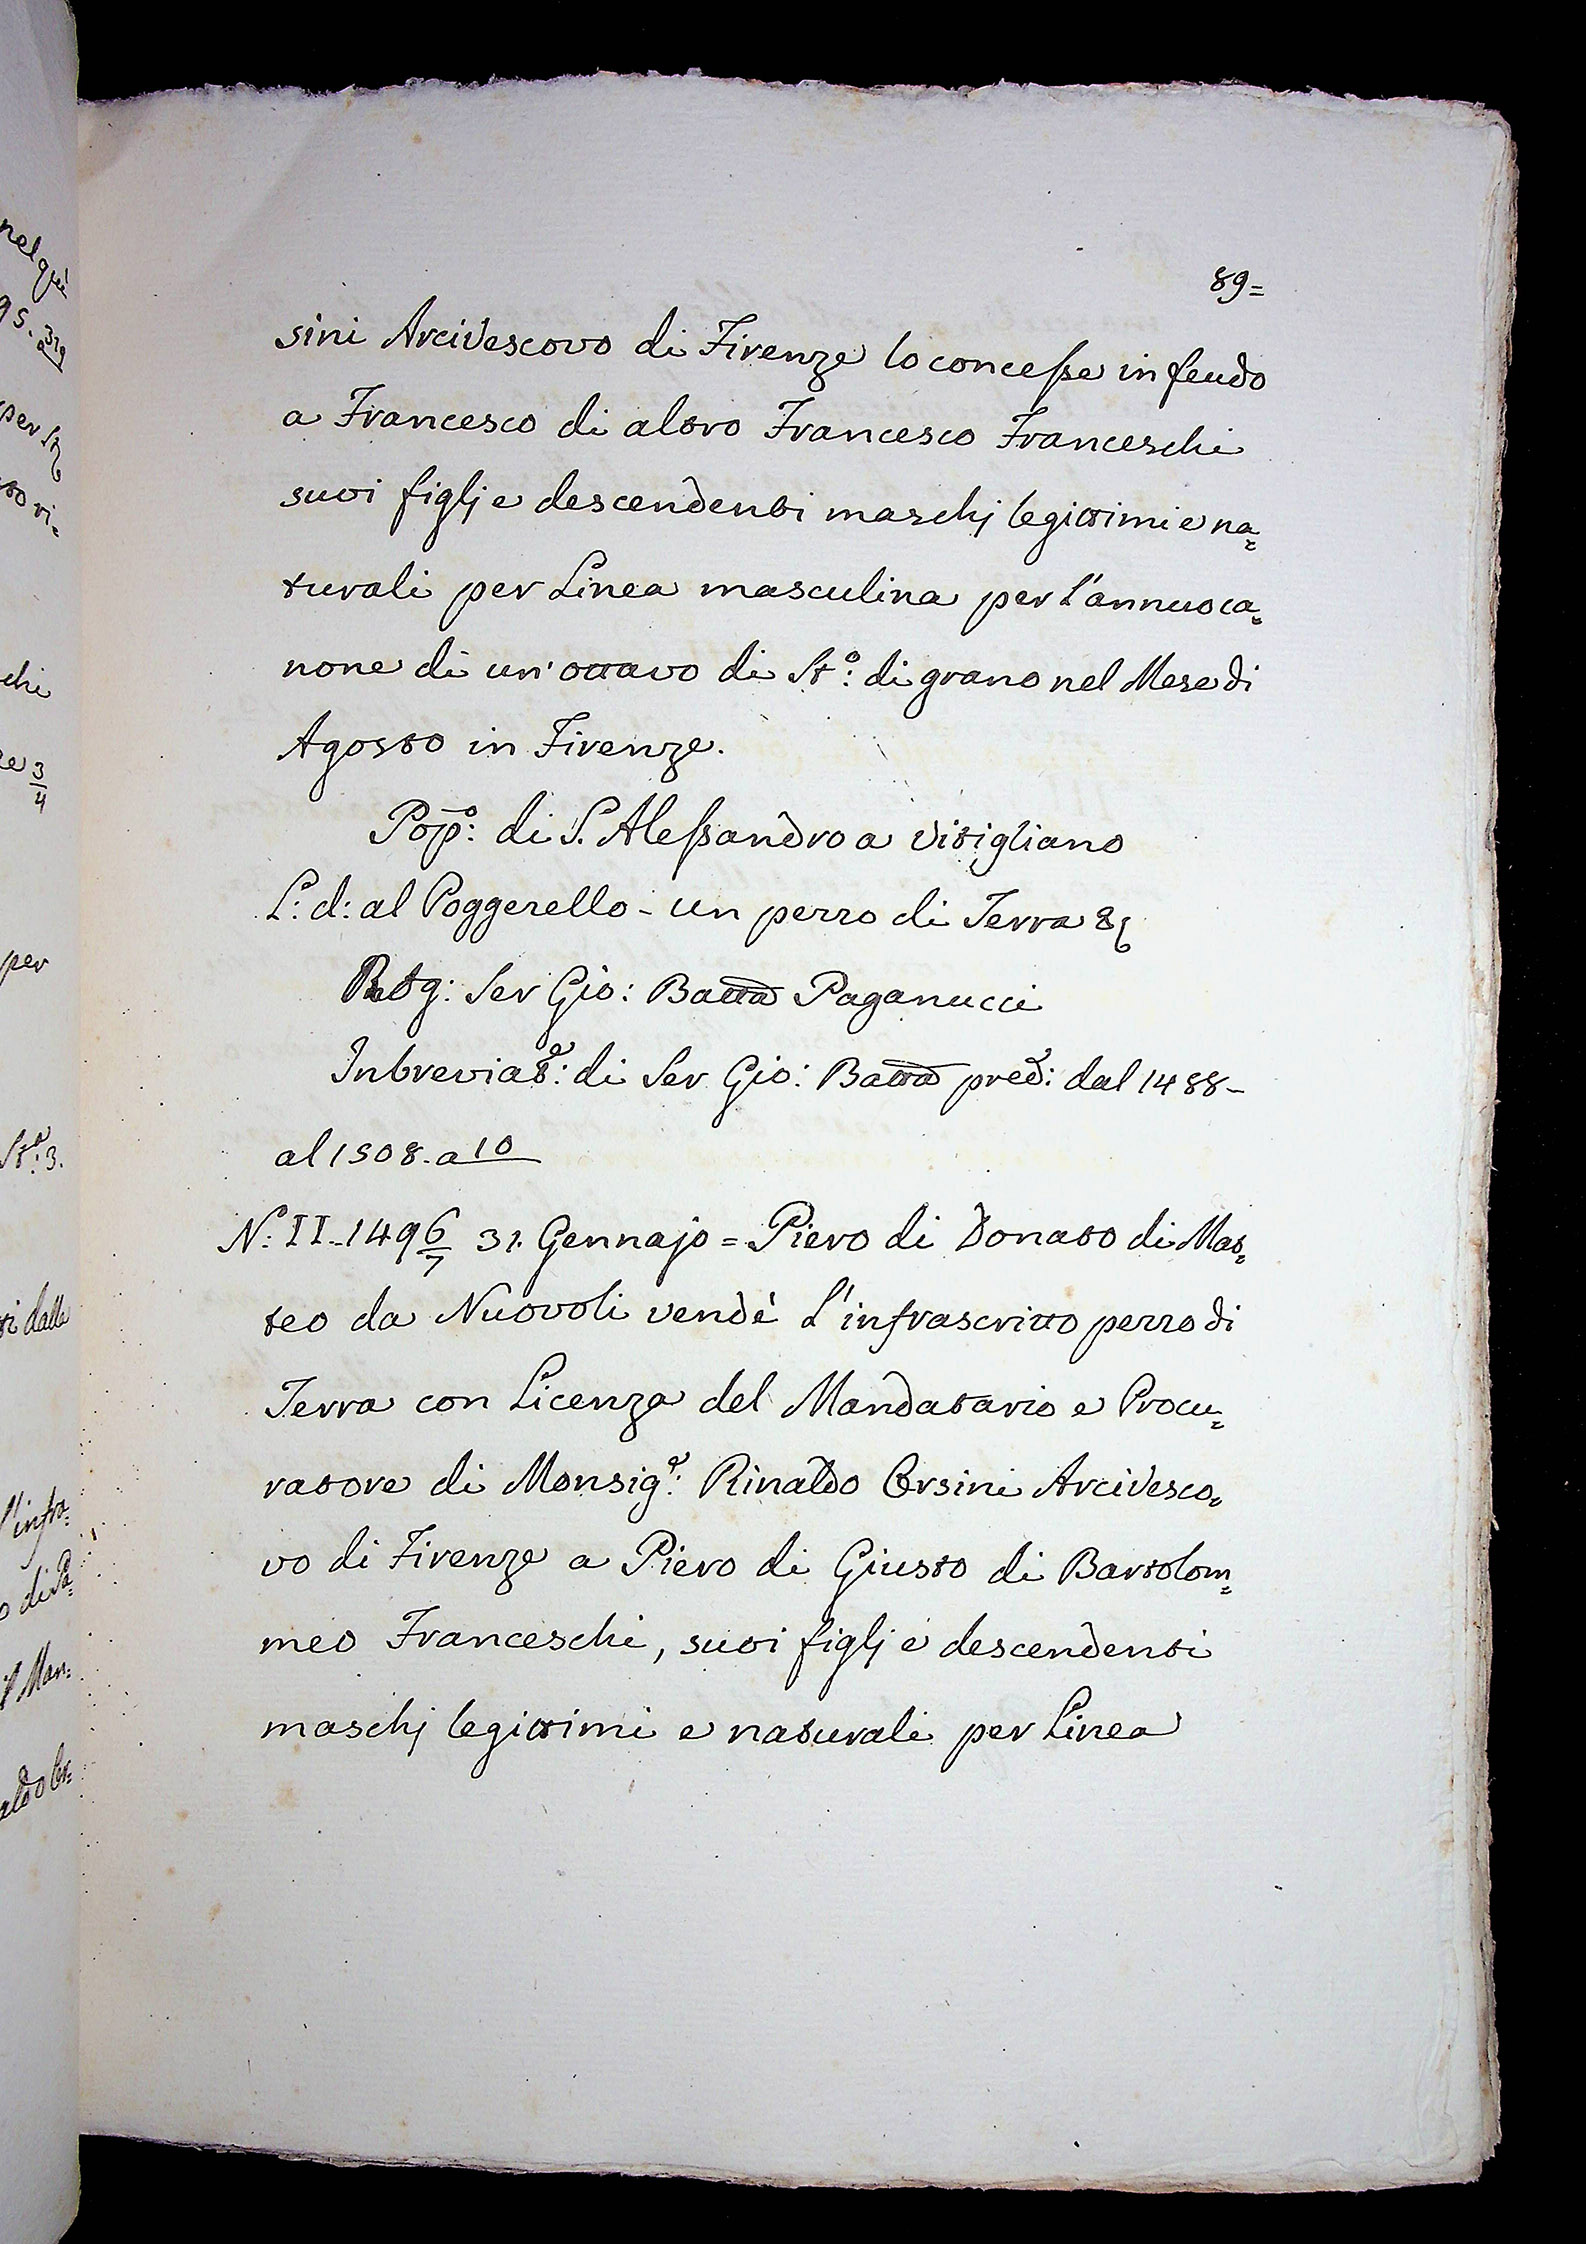 89=
sini Arcivescovo di Firenze lo concesse in feudo
a Francesco di altro Francesco Franceschi
suoi figlj e descendenti maschj legittimi e na=
turali per Linea masculina per l'annuo ca=
none di un' ottavo di St.º: di grano nel Mese di
Agosto in Firenze.
Pop.º: di S. Alessandro a Vitigliano
L: d: al Poggerello - un pezzo di Terra &c
Rog: Ser Gio: Batta Paganucci
Inbreviat.e: di Ser Gio: Batta pred: dal 1488-
al 1508. a 10
N: II. 1496/7 31. Gennajo = Piero di Donato di Mat=
teo da Nuovoli vendè l'infrascritto pezzo di
Terra con Licenza del Mandatario e Procu=
ratore di Monsig.e: Rinaldo Orsini Arcivesco=
vo di Firenze a Piero di Giusto di Bartolom=
meo Franceschi, suoi figlj e descendenti
maschj legittimi e naturali per Linea
nel
95.
per
chi
3/4
per
St.a: 3.
dalla
l'infra=
o di Pa=
il Man=
aldo Or=